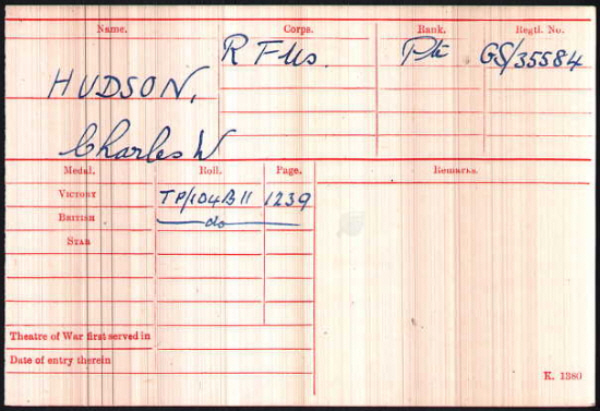 Name. Corps. Rank. Regtl. No.
R Fus. Pte GS/35584
HUDSON,
Charles W
Medal. Roll. Page. Remarks.
VICTORY TP/104B11 1239
BRITISH do
STAR
Theatre of War first served in
Date of entry therein
K. 1380